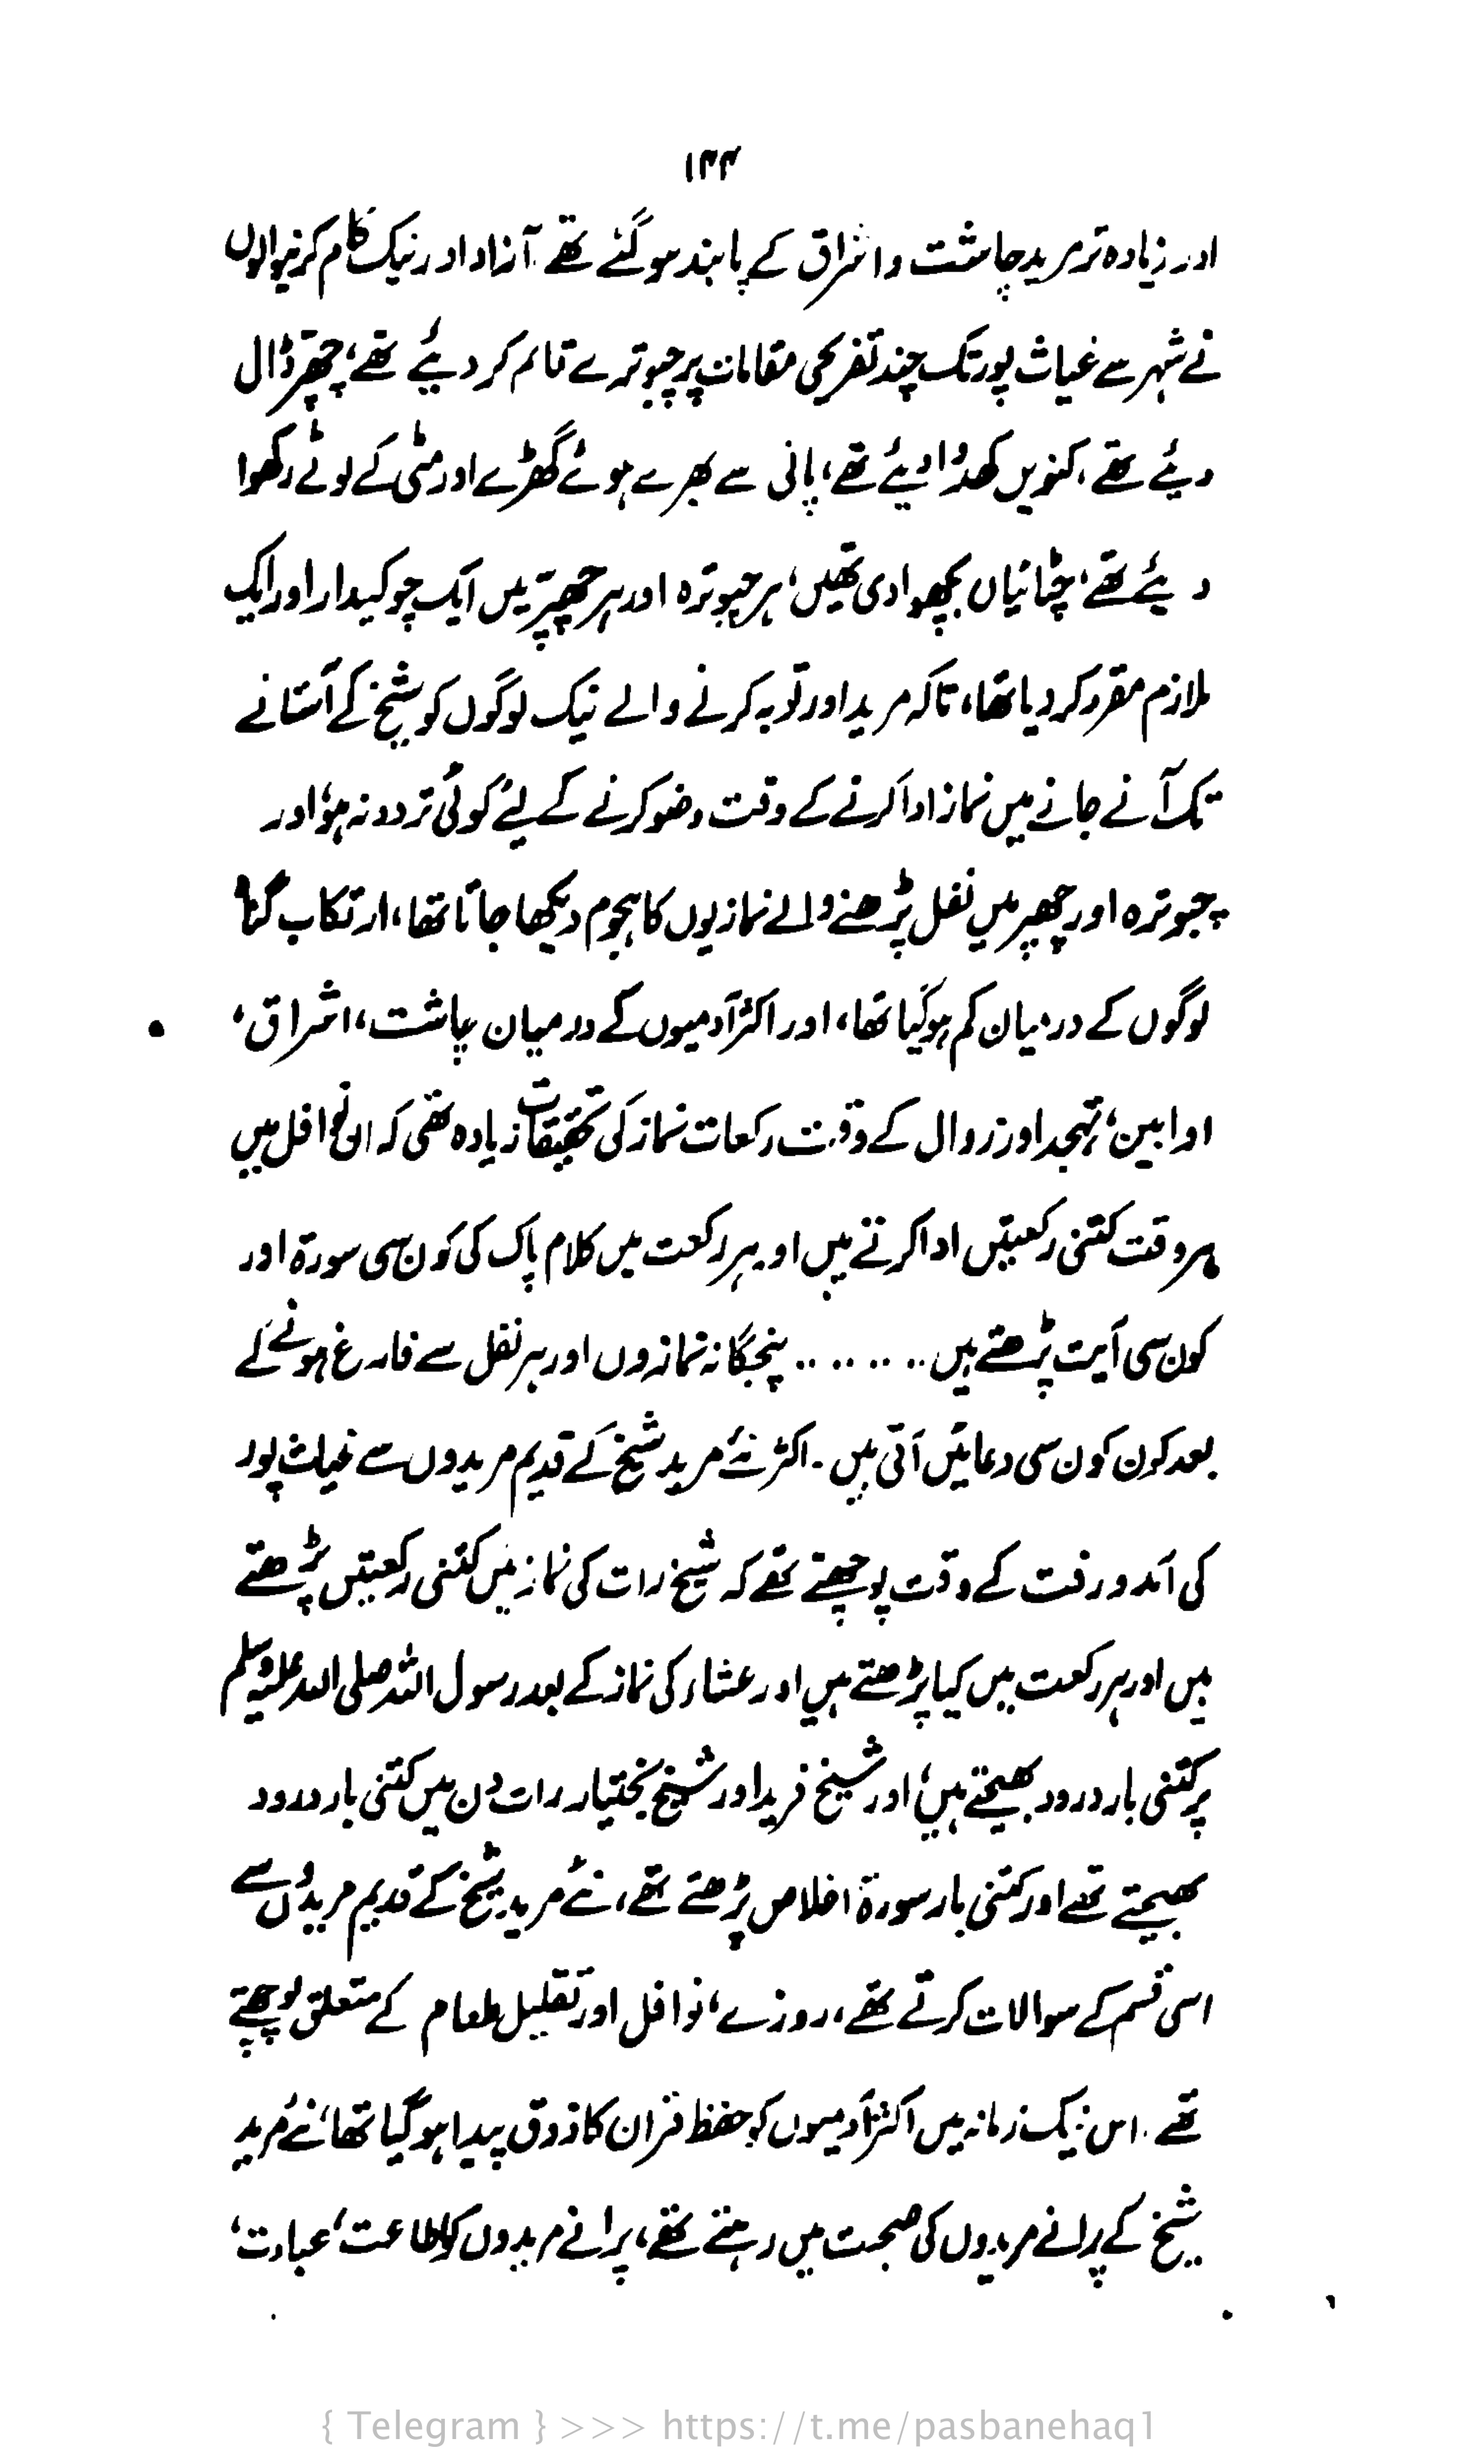 ۱۴۴
اور زیادہ تر مرید چاشت و اشراق کے پابند ہو گئے تھے۔ آزاد اور نیک کام کرنیوالوں
نے شہر سے غیاث پور تک چند تفریحی مقامات پر چبوترے قائم کر دیئے تھے، چھپّر ڈال
دیئے تھے، کنویں کھدوا دیئے تھے، پانی سے بھرے ہوئے گھڑے اور مٹی کے لوٹے رکھوا
دیئے تھے، چٹائیاں بچھوا دی تھیں، ہر چبوترہ اور ہر چھپّر میں ایک چوکیدار اور ایک
ملازم مقرر کر دیا تھا، تاکہ مرید اور توبہ کرنے والے نیک لوگوں کو شیخ کے آستانے
تک آنے جانے میں نماز ادا کرنے کے وقت وضو کرنے کے لئے کوئی تردد نہ ہو، اور
چبوترہ اور چھپر میں نفل پڑھنے والے نمازیوں کا ہجوم دیکھا جاتا تھا، ارتکاب گناہ
لوگوں کے درمیان کم ہو گیا تھا، اور اکثر آدمیوں کے درمیان چاشت، اشراق،
اوابین، تہجد اور زروال کے وقت رکعات نماز کی تحقیقات زیادہ تھی کہ ان نوافل میں
ہر وقت کتنی رکعتیں ادا کرتے ہیں اور ہر رکعت میں کلام پاک کی کون سی سورۃ اور
کون سی آیت پڑھتے ہیں ........ پنجگانہ نمازوں اور ہر نفل سے فارغ ہونے کے
بعد کون کون سی دعائیں آتی ہیں۔ اکثر نئے مرید شیخ کے قدیم مریدوں سے غیاث پور
کی آمد و رفت کے وقت پوچھتے تھے کہ شیخ رات کی نماز میں کتنی رکعتیں پڑھتے
ہیں اور ہر رکعت میں کیا پڑھتے ہیں اور عشاء کی نماز کے بعد رسول اللہ صلی اللہ علیہ وسلم
پر کتنی بار درود بھیجتے ہیں، اور شیخ فرید اور شیخ بختیار رات دن میں کتنی بار درود
بھیجتے تھے اور کتنی بار سورۃ اخلاص پڑھتے تھے، نئے مرید شیخ کے قدیم مریدوں سے
اسی قسم کے سوالات کرتے تھے، روزے، نوافل اور تقلیل طعام کے متعلق پوچھتے
تھے۔ اس نیک زمانہ میں اکثر آدمیوں کو حفظ قرآن کا ذوق پیدا ہو گیا تھا، نئے مرید
شیخ کے پرانے مریدوں کی صحبت میں رہتے تھے، پرانے مریدوں کو طاعت، عبادت،
{ Telegram } >>> https://t.me/pasbanehaq1